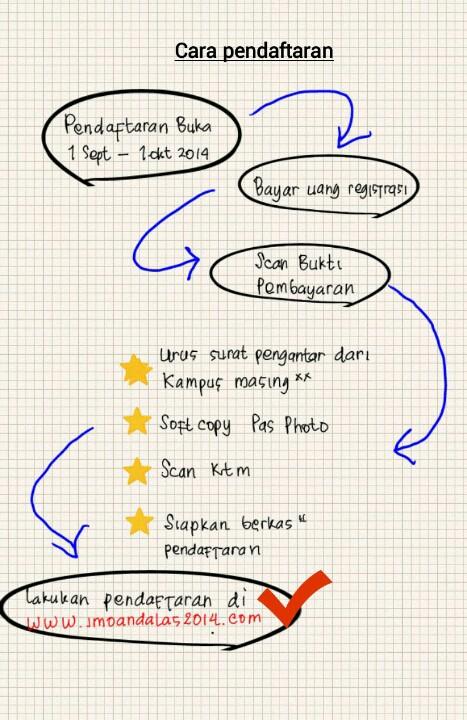 Cara pendaftaran
Pendaftaran Buka
1 Sept - 1 okt 2014
Bayar uang registrasi
Scan Bukti
Pembayaran
Urus surat pengantar dari
Kampus masing **
Soft copy Pas Photo
Scan Ktm
Siapkan berkas "
pendaftaran
Lakukan pendaftaran di
www.imoandalas2014.com